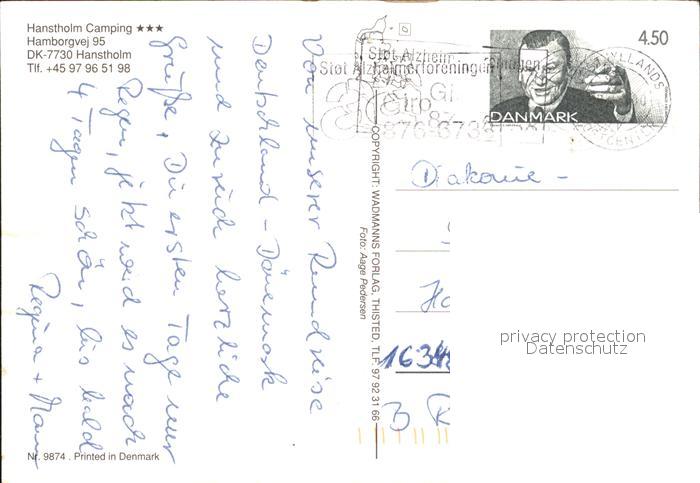 Hanstholm Camping ★★★
Hamborgvej 95
DK-7730 Hanstholm
Tlf. +45 97 96 51 98
Von unserer Rundreise
Deutschland - Dänemark
und zurück herzliche
Grüße. Die ersten Tage nur
Regen, jetzt wird es nach
4 Tagen schön, bis bald
Regina +
Nr. 9874 . Printed in Denmark
COPYRIGHT: WADMANNS FORLAG, THISTED, TLF. 97 92 31 66
Foto: Aage Pedersen
Støt Alzheim
Støt Alzheimerforeningen
Giro
4.50
DANMARK
Diakonie -
Ha
1634
privacy protection
Datenschutz